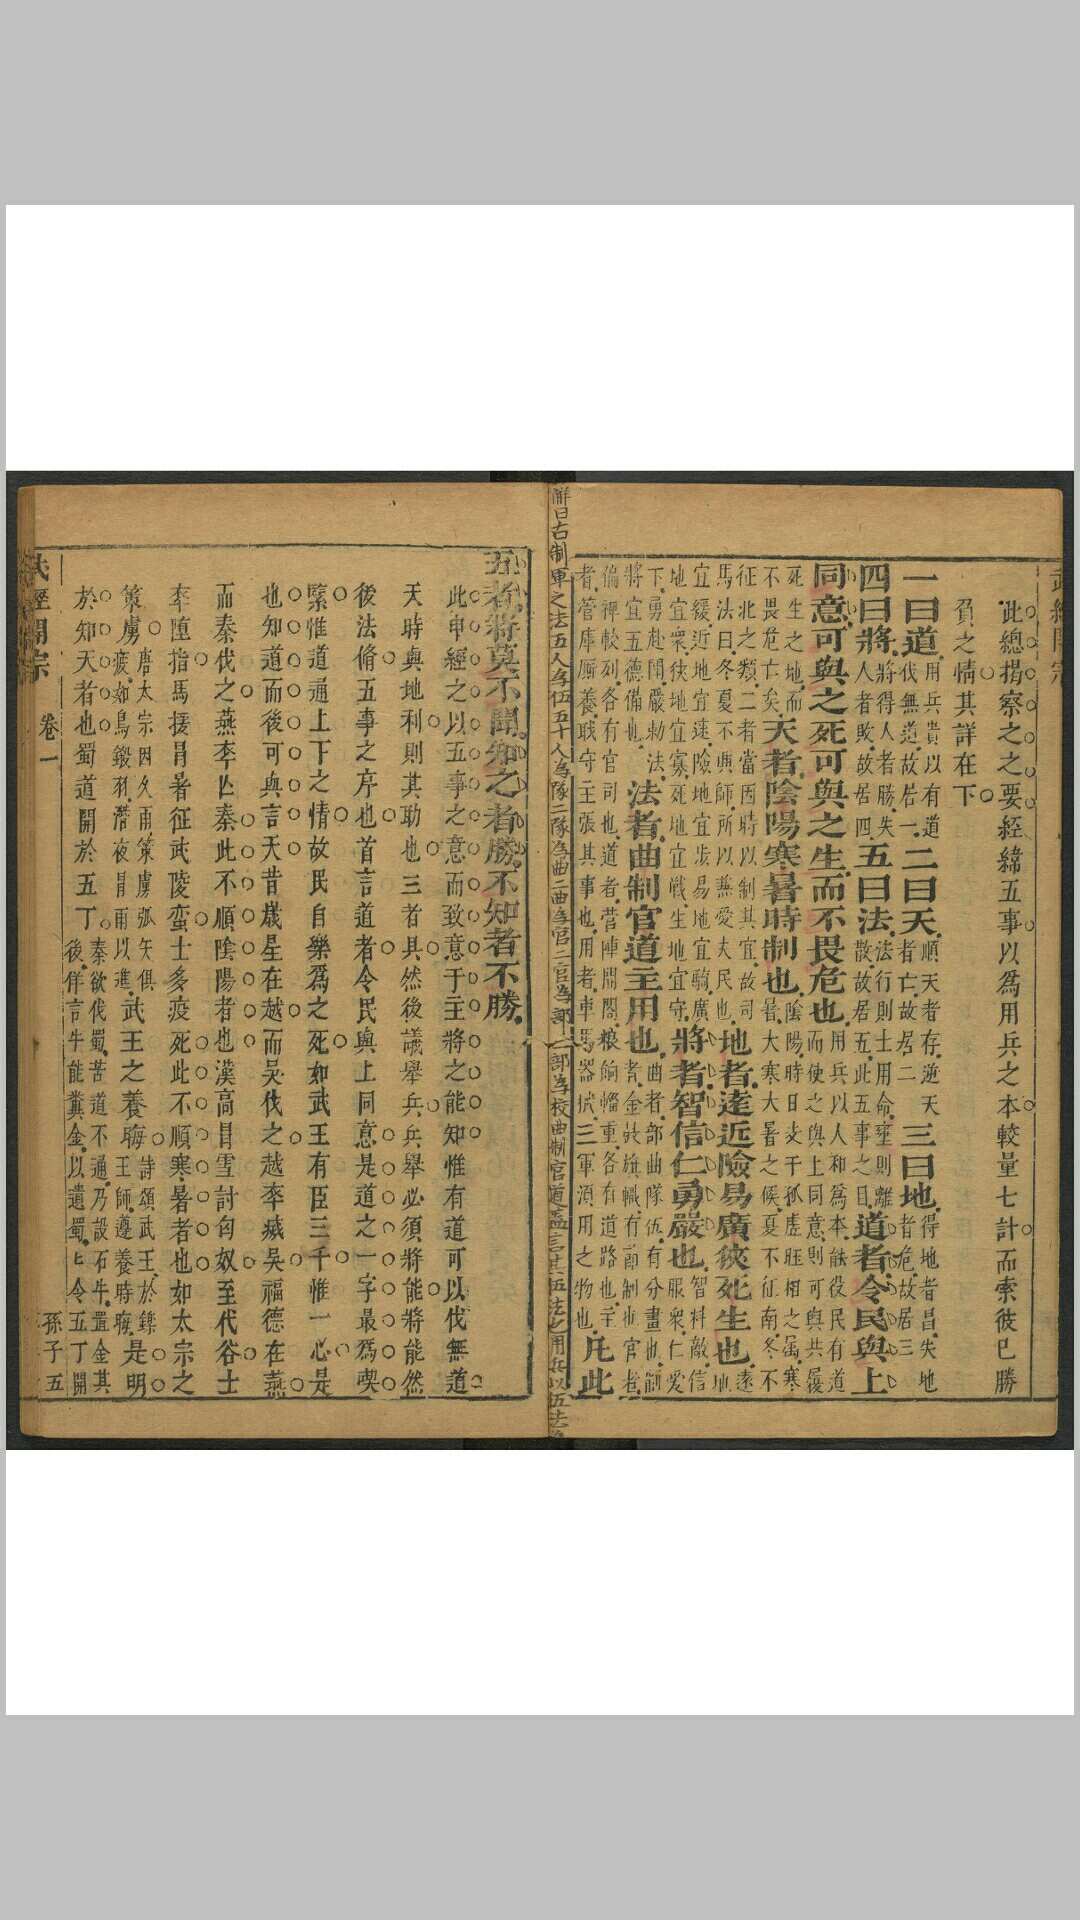 此總揭察之之要經緯五事以爲用兵之本較量七計而索彼巳勝
負之情其詳在下
一曰道用兵貴以有道伐無道故居一二曰天順天者存逆天者亡故居二三曰地得地者昌失地者危故居三
四曰將將得人者勝失人者敗故居四五曰法法行則士用命壅則離散故居五此五事之目道者令民與上
同意可與之死可與之生而不畏危也用兵以人和爲本能役民有道而使之與上同意則可與共履
死生之地而不畏危亡矣天者陰陽寒暑時制也陰陽時日支干孤虛旺相之屬寒暑大寒大暑之候夏不征南冬不
征北之類二者當因時以制其宜故司馬法曰冬夏不興師所以兼愛夫民也地者遠近險易廣狹死生也遠地
宜緩近地宜速險地宜步易地宜騎廣地宜衆狹地宜寡死地宜戰生地宜守將者智信仁勇嚴也智料敵信服衆仁愛
下勇赴鬪嚴勅法將宜五德備也法者曲制官道主用也曲者部曲隊伍有分畫也制者金鼓旗幟有節制也官者
偏裨校列各有官司也道者營陣開闔粮餉輜重各有道路也主者管庫厮養職守主張其事也用者車馬器械三軍須用之物也凡此
解曰古制軍之法五人爲伍五十人爲隊二隊爲曲二曲爲官二官爲部二部爲校曲制官道
五者將莫不聞知之者勝不知者不勝
此申經之以五事之意而致意于主將之能知惟有道可以伐無道
天時與地利則其助也三者其然後議舉兵兵舉必須將能將能然
後法脩五事之序也首言道者令民與上同意是道之一字最爲喫
緊惟道通上下之情故民自樂爲之死如武王有臣三千惟一心是
也知道而後可與言天昔歲星在越而吳伐之越卒滅吳福德在燕
而秦伐之燕卒亾秦此不順陰陽者也漢高冒雪討匈奴至代谷士
卒墮指馬援冒暑征武陵蛮士多疫死此不順寒暑者也如太宗之
策虜唐太宗因久雨策虜弧矢俱疲如鳥鎩羽潛夜冒雨以進武王之養晦詩頌武王於鑠王師遵養時晦是明
於知天者也蜀道開於五丁秦欲伐蜀苦道不通乃設石牛置金其後佯言牛能糞金以遺蜀蜀令五丁開
武經開宗
卷一
孫子五